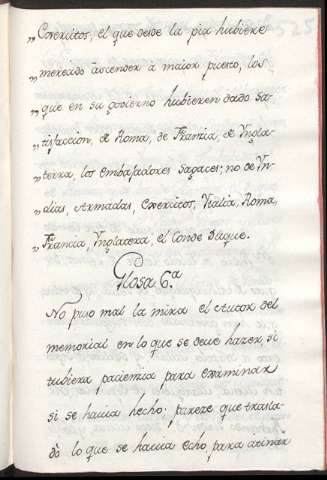 „ Exercitos, el que desde la pica hubiere
„ mereçido ascender à maior puesto, los
„ que en su govierno hubieren dado sa-
„ tisfaccion, de Roma, de Francia, de Yngla-
„ terra, los embaxadores sagaces; no de Yn-
„ dias, Armadas, Exercitos, Italia, Roma,
„ Francia, Ynglaterra, el Conde Duque.
Glosa 6.ª
No puso mal la mira el Autor del
memorial en lo que se deve hazer, si
tubiera paciencia para examinar
si se havia hecho: pareze que trasla-
dò lo que se havia echo para
525